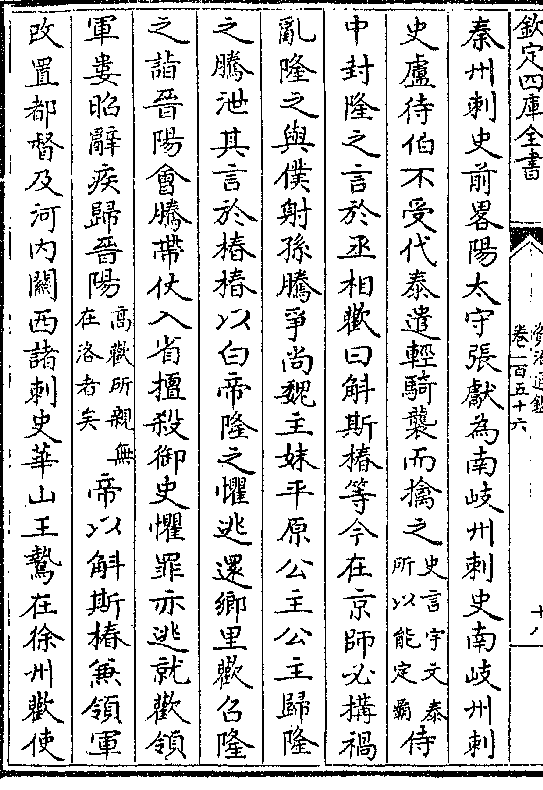 欽定四庫全書
資治通鑑
卷一百五十六
十八
秦州刺史前畧陽太守張獻為南岐州刺史南岐州刺
史盧待伯不受代泰遣輕騎襲而擒之史言宇文泰所以能定霸侍
中封隆之言於丞相歡曰斛斯椿等今在京師必搆禍
亂隆之與僕射孫騰爭尚魏主妹平原公主公主歸隆
之騰泄其言於椿椿以白帝隆之懼逃還鄉里歡召隆
之詣晉陽會騰帶仗入省擅殺御史懼罪亦逃就歡領
軍婁昭辭疾歸晉陽高歡所親無在洛者矣帝以斛斯椿兼領軍
改置都督及河內關西諸刺史華山王鷙在徐州歡使